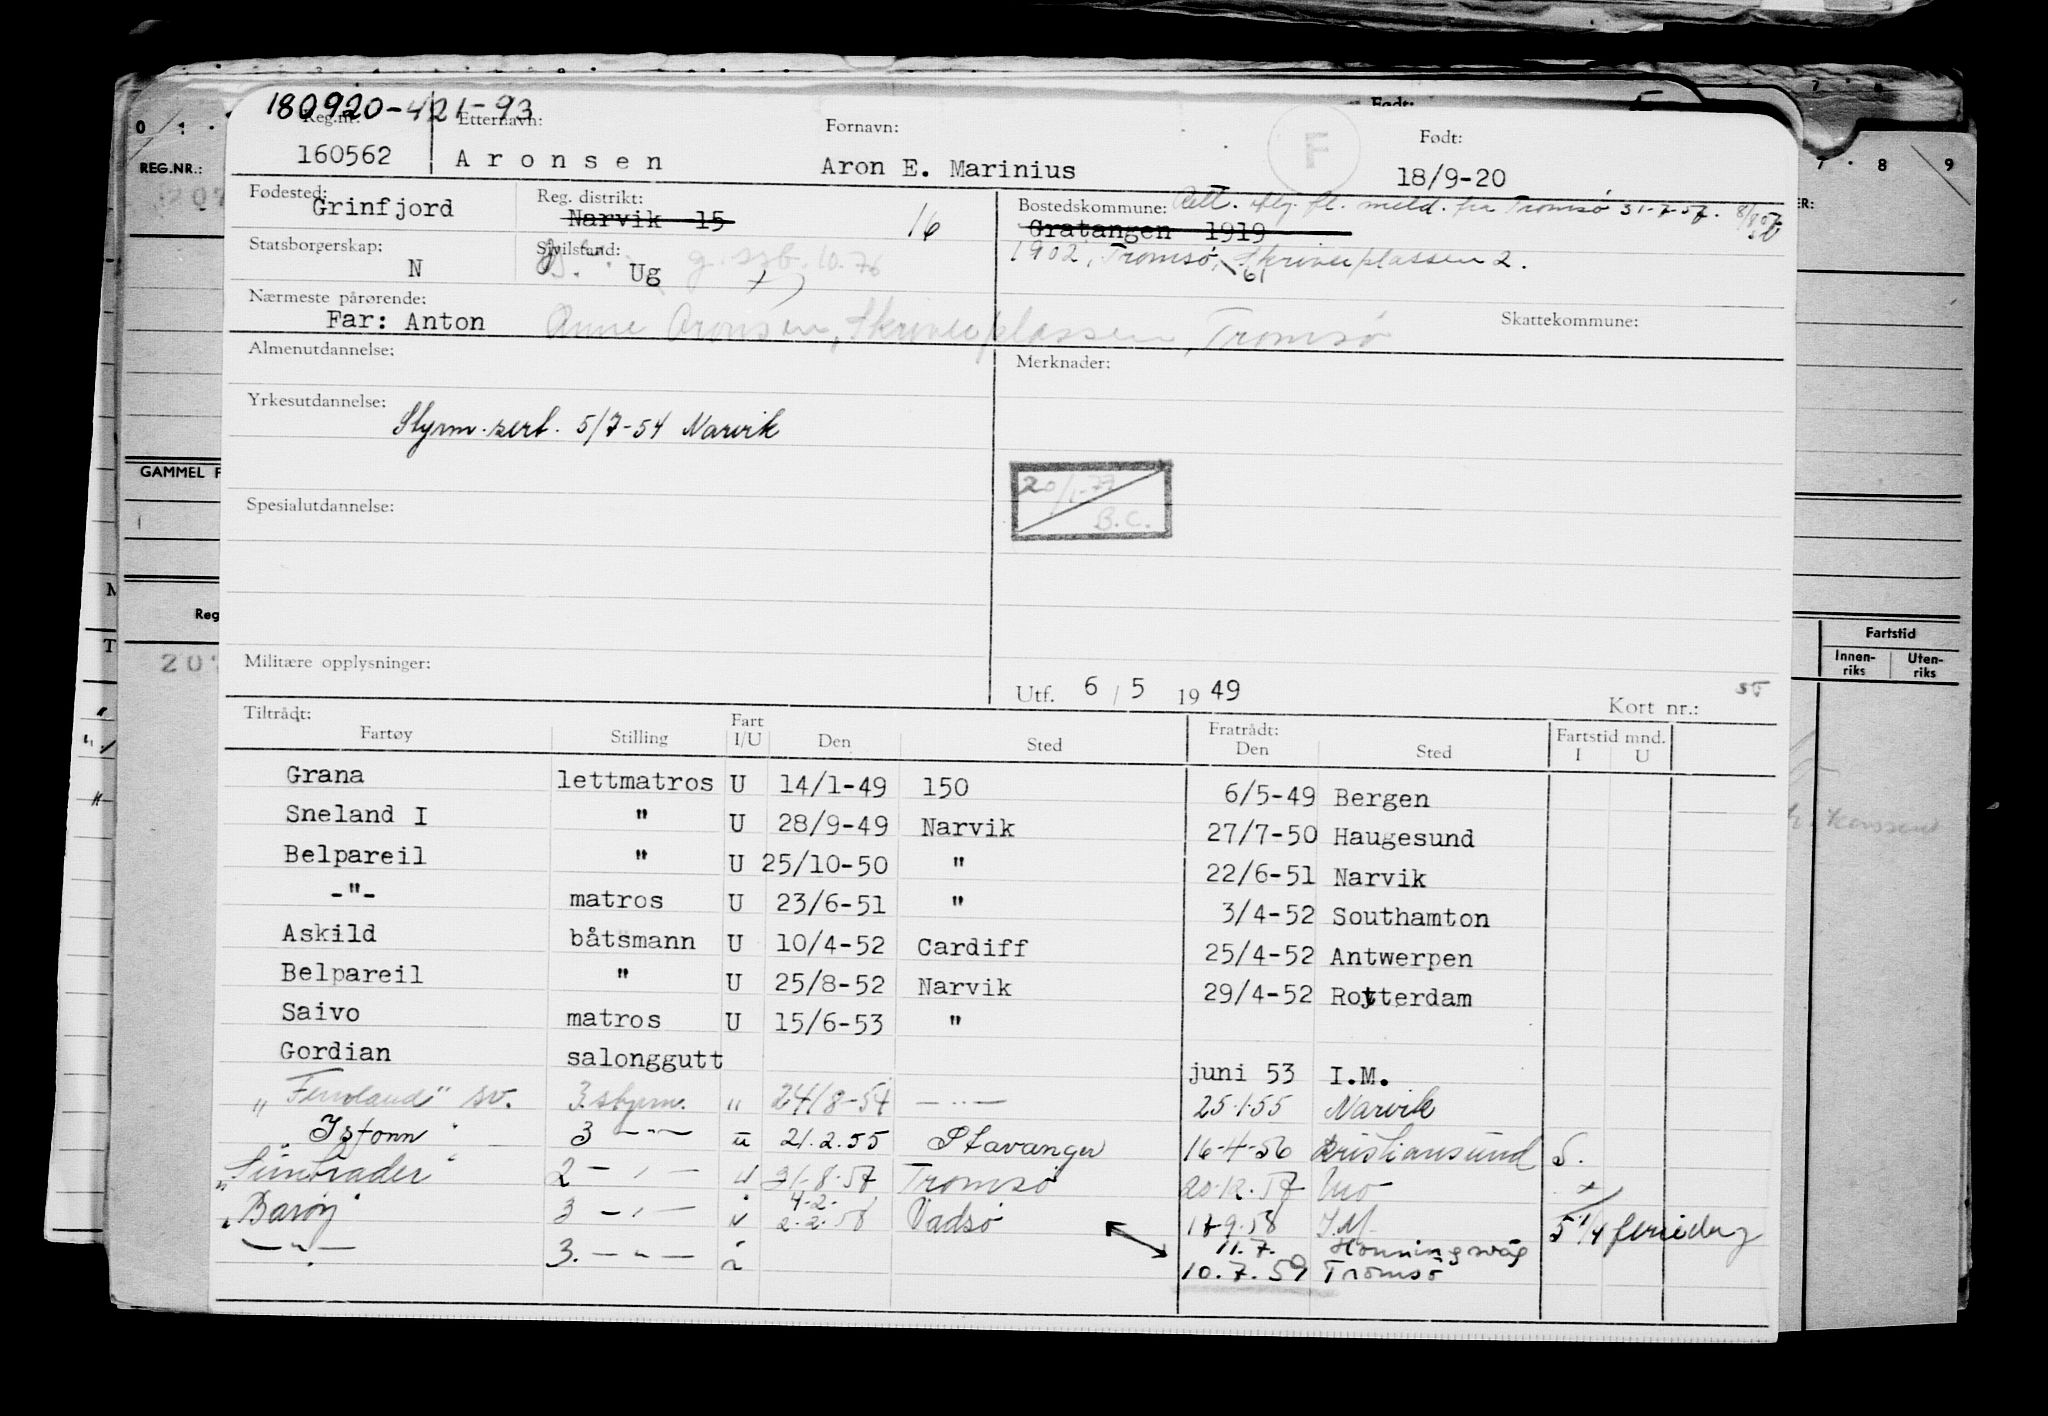 180920-421-93
Reg.nr. Etternavn: Fornavn: Født:
160562 Aronsen Aron E. Marinius F 18/9-20
Fødested: Grinfjord Reg. distrikt: Narvik 15 16 Bostedskommune: fl. meld. fra Tromsø 31-7-57.
Gratangen 1919
Statsborgerskap: N Sivilstand: Ug 10.76 1902, Tromsø, Skriverplassen 2.
61
Nærmeste pårørende:
Far: Anton Anne Aronsen, Skriverplassen, Tromsø Skattekommune:
Almenutdannelse: Merknader:
Yrkesutdannelse:
Styrm.sert. 5/7-54 Narvik
20/1-77
B.C.
Spesialutdannelse:
Militære opplysninger:
Utf. 6/5 1949 Kort nr.:
Tiltrådt: Fratrådt: Fartstid mnd.
Fartøy Stilling Fart I/U Den Sted Den Sted I U
Grana lettmatros U 14/1-49 150 6/5-49 Bergen
Sneland I " U 28/9-49 Narvik 27/7-50 Haugesund
Belpareil " U 25/10-50 " 22/6-51 Narvik
-"- matros U 23/6-51 " 3/4-52 Southamton
Askild båtsmann U 10/4-52 Cardiff 25/4-52 Antwerpen
Belpareil " U 25/8-52 Narvik 29/4-52 Rotterdam
Saivo matros U 15/6-53 "
Gordian salonggutt juni 53 I.M.
"Fernland" sv. 3.styrm. " 24/8-54 —"— 25.1.55 Narvik
Isfonn 3 —"— u 21.2.55 Stavanger 16-4-56 Kristiansund S.
2 —"— 31.8.57 Tromsø 20.12.57
"Barøy" 3 —"— 4.2. 2.2.58 Vadsø 17-9.58 I.M. 5 1/4 feriedag
—"— 3. —"— 11.7. Honningsvåg
10.7.59 Tromsø
REG.NR.:
GAMMEL F
Reg
207
Født:
7 8 9
Fartstid
Innen-riks Uten-riks